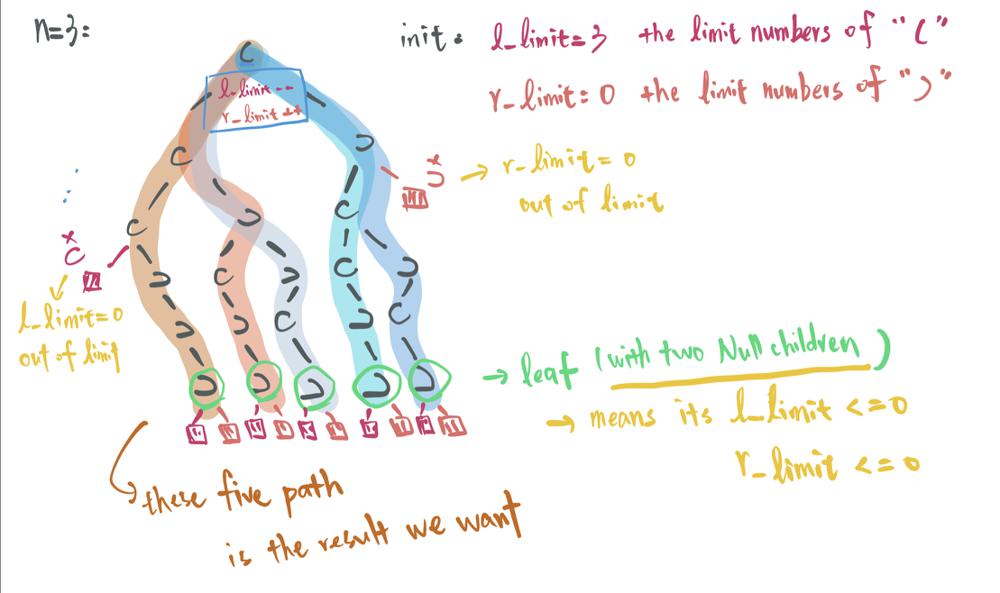 n=3:
init: l_limit=3 the limit numbers of "("
r_limit=0 the limit numbers of ")"
(
l_limit --
r_limit ++
( )
x
)
→ r_limit=0
out of limit
( ) (
x
(
l_limit=0
out of limit
) ( ) ( )
) ) ( ) (
) ) ) ) )
→ leaf (with two Null children)
→ means its l_limit <=0
r_limit <=0
these five path
is the result we want